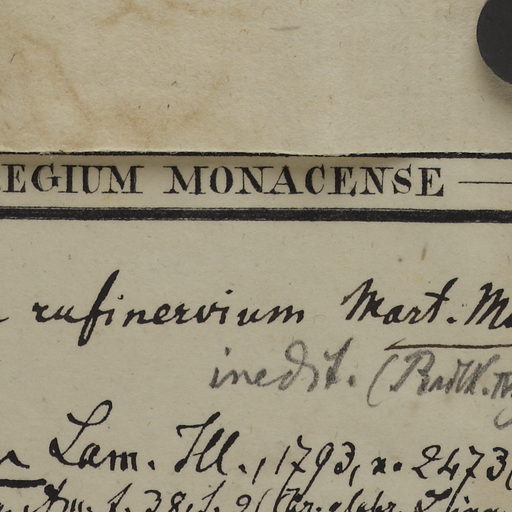 EGIUM MONACENSE
rufinervium Mart. M
inedit. (Radlk.
Lam. Ill., 1793, n. 2473
t. 38, f. 2